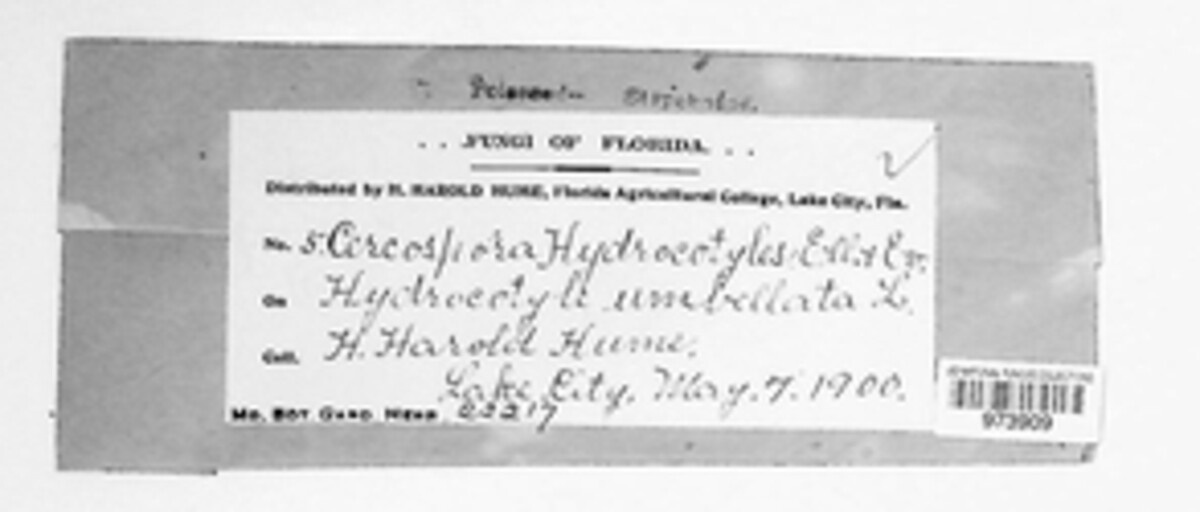 . . FUNGI OF FLORIDA. . .
Distributed by H. HAROLD HUME, Florida Agricultural College, Lake City, Fla.
No. 5. Cercospora Hydrocotyles Ell. & Ev.
On Hydrocotyle umbellata L.
Coll. H. Harold Hume.
Lake City, May. 7. 1900.
MO. BOT. GARD. HERB.
973909